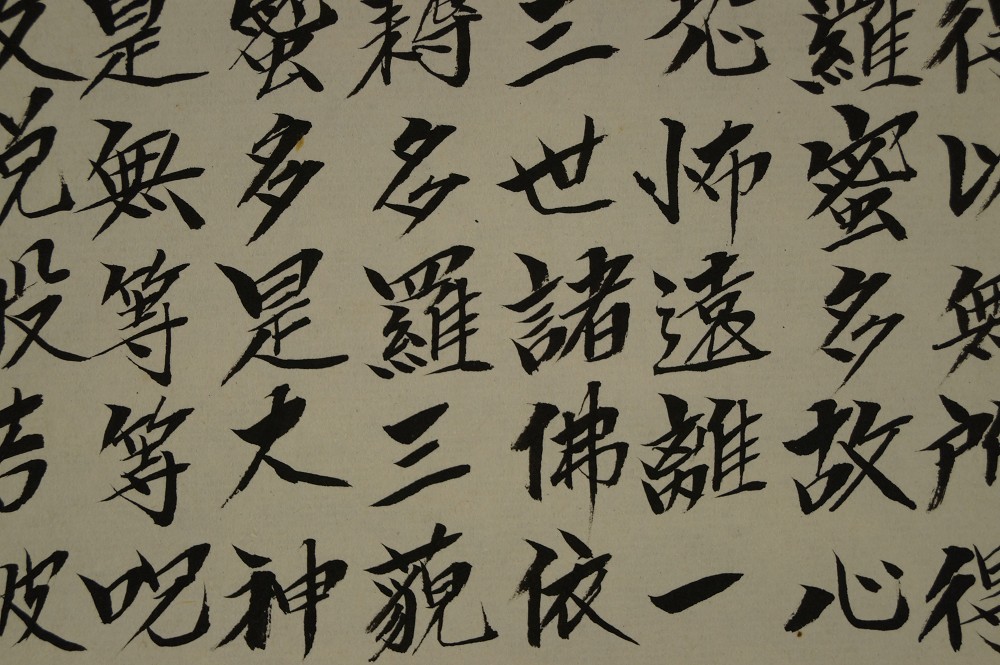 得以無所得
羅蜜多故心
恐怖遠離一
三世諸佛依
耨多羅三藐
蜜多是大神
是無等等呪
故說般若波